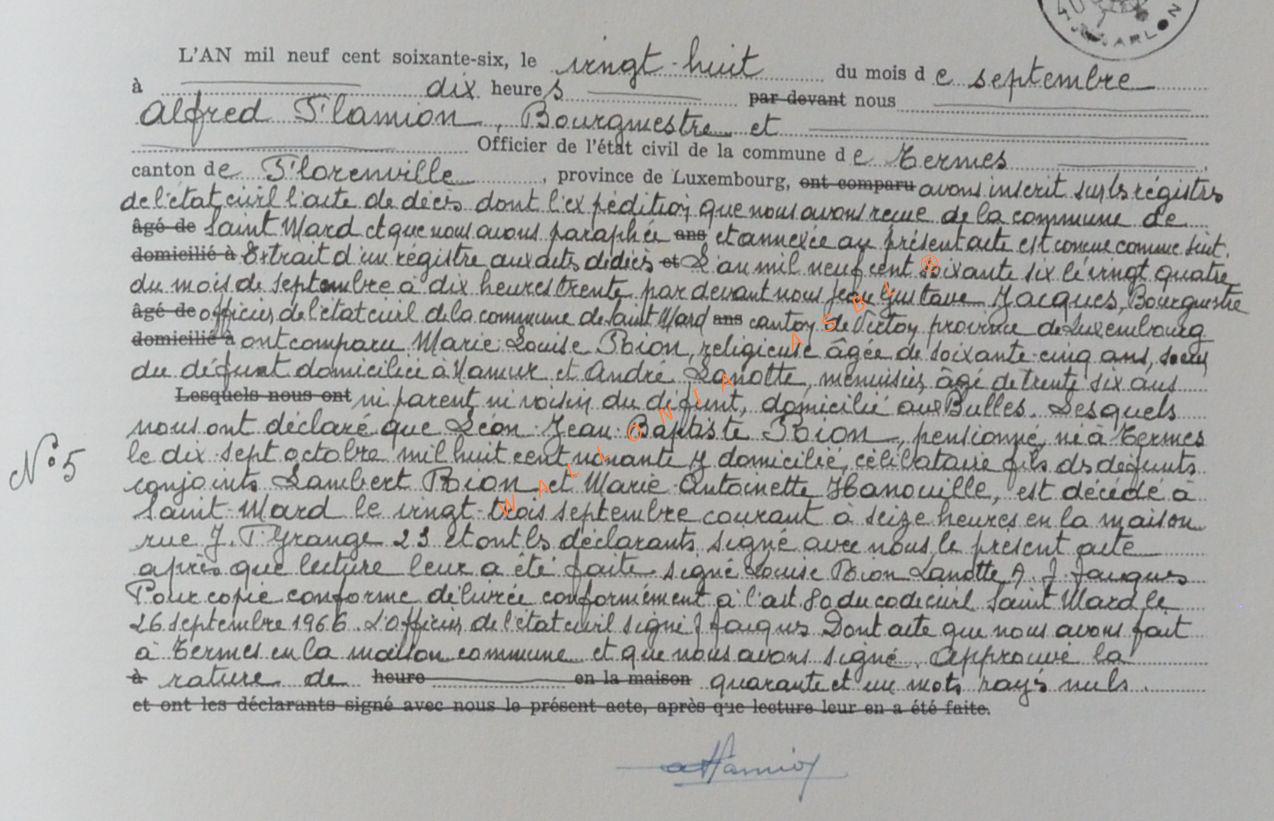 ARLON
L'AN mil neuf cent soixante-six, le vingt-huit du mois de septembre
à dix heures par devant nous
Alfred Hamion, Bourgmestre et
Officier de l'état civil de la commune de Termes
canton de Florenville, province de Luxembourg, ont comparu avons inscrit sur les régistres
de l'état civil l'acte de décès dont l'expédition que nous avons reçue de la commune de
âgé de Saint Mard et que nous avons paraphée ans et annexée au présent acte est conçue comme suit
domicilié à Extrait d'un régistre aux actes de décès et L'an mil neuf cent soixante six le vingt quatre
du mois de septembre à dix heures trente par devant nous Jean Gustave Jacques, Bourgmestre
âgé de officier de l'état civil de la commune de Saint Mard ans canton de Virton province de Luxembourg
domicilié à ont comparu Marie-Louise Bion, religieuse âgée de soixante-cinq ans, soeur
du défunt domiciliée à Namur et André Lanotte, menuisier, âgé de trente six ans
Lesquels nous ont ni parent ni voisin du défunt, domicilié aux Bulles. Lesquels
nous ont déclaré que Léon-Jean-Baptiste Bion, pensionné, né à Termes
N° 5
le dix-sept octobre mil huit cent nonante y domicilié, célibataire fils des défunts
conjoints Lambert Bion et Marie Antoinette Hanouille, est décédé à
Saint-Mard le vingt-trois septembre courant à seize heures en la maison
rue J. P. Grange 23 et ont les déclarants signé avec nous le présent acte
après que lecture leur a été faite. signé Louise Bion Lanotte A. J. Jacques
Pour copie conforme délivrée conformément à l'art. 80 du code civil Saint Mard le
26 septembre 1966. L'Officier de l'état civil signé J Jacques Dont acte que nous avons fait
à Termes en la maison commune et que nous avons signé. Approuvé la
à rature de heure en la maison quarante et un mots rayés nuls.
et ont les déclarants signé avec nous le présent acte, après que lecture leur en a été faite.
WALLONIA ASBL ®